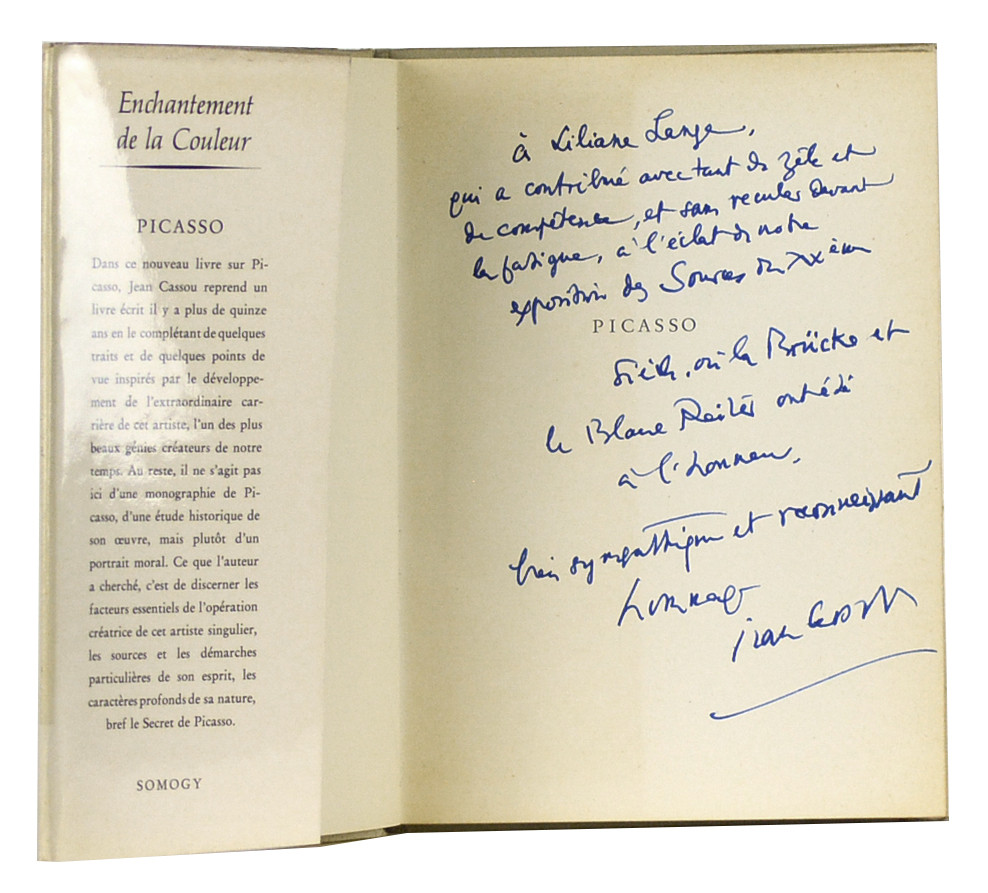 Enchantement
de la Couleur
PICASSO
Dans ce nouveau livre sur Pi-
casso, Jean Cassou reprend un
livre écrit il y a plus de quinze
ans en le complétant de quelques
traits et de quelques points de
vue inspirés par le développe-
ment de l'extraordinaire car-
rière de cet artiste, l'un des plus
beaux génies créateurs de notre
temps. Au reste, il ne s'agit pas
ici d'une monographie de Pi-
casso, d'une étude historique de
son œuvre, mais plutôt d'un
portrait moral. Ce que l'auteur
a cherché, c'est de discerner les
facteurs essentiels de l'opération
créatrice de cet artiste singulier,
les sources et les démarches
particulières de son esprit, les
caractères profonds de sa nature,
bref le Secret de Picasso.
SOMOGY
à Liliane Lange,
qui a contribué avec tant de zèle et
de compétence, et sans reculer devant
la fatigue, à l'éclat de notre
exposition des Sources du XXème
PICASSO
Siècle, où la Brücke et
le Blaue Reiter ont été
à l'honneur,
bien sympathique et reconnaissant
hommage
Jean Cassou